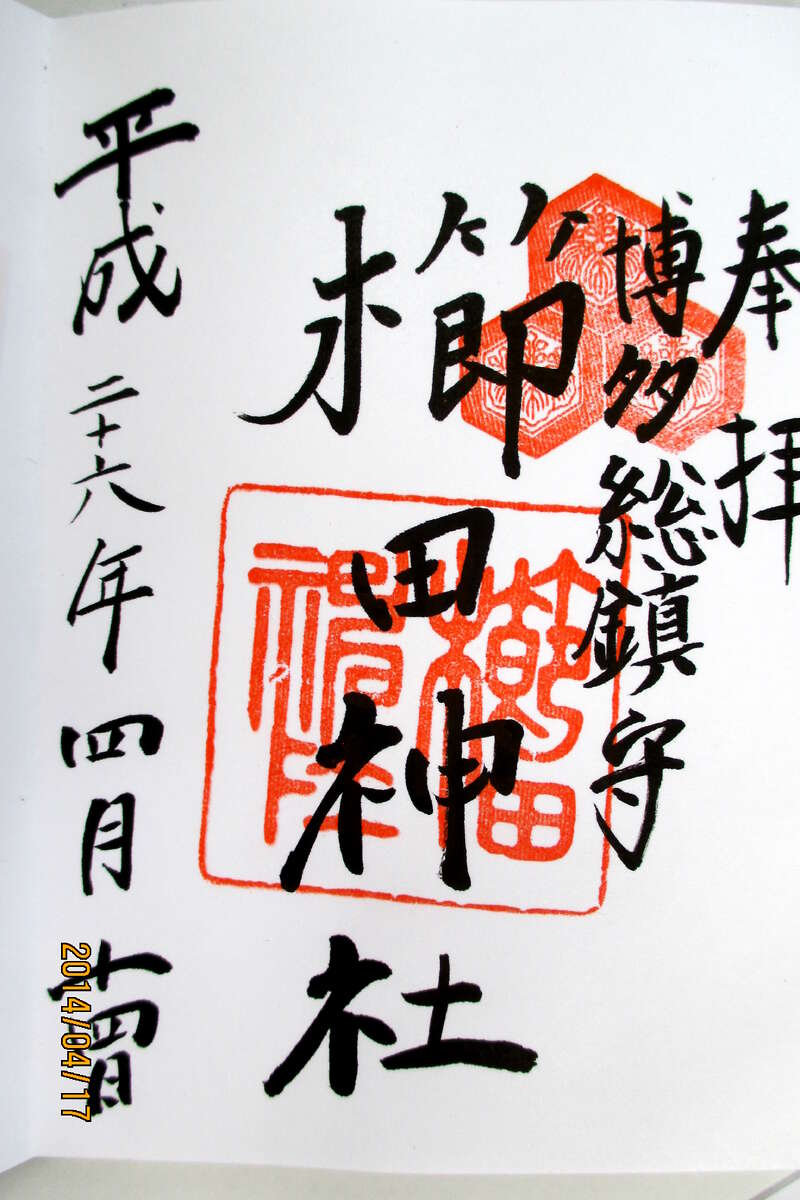 奉拝
博多総鎮守
櫛田神社
平成二十六年四月十四日
2014/04/17